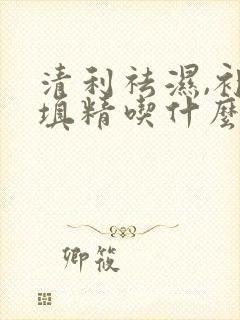 清利祛濕,补
填精喫什麼
卿筱